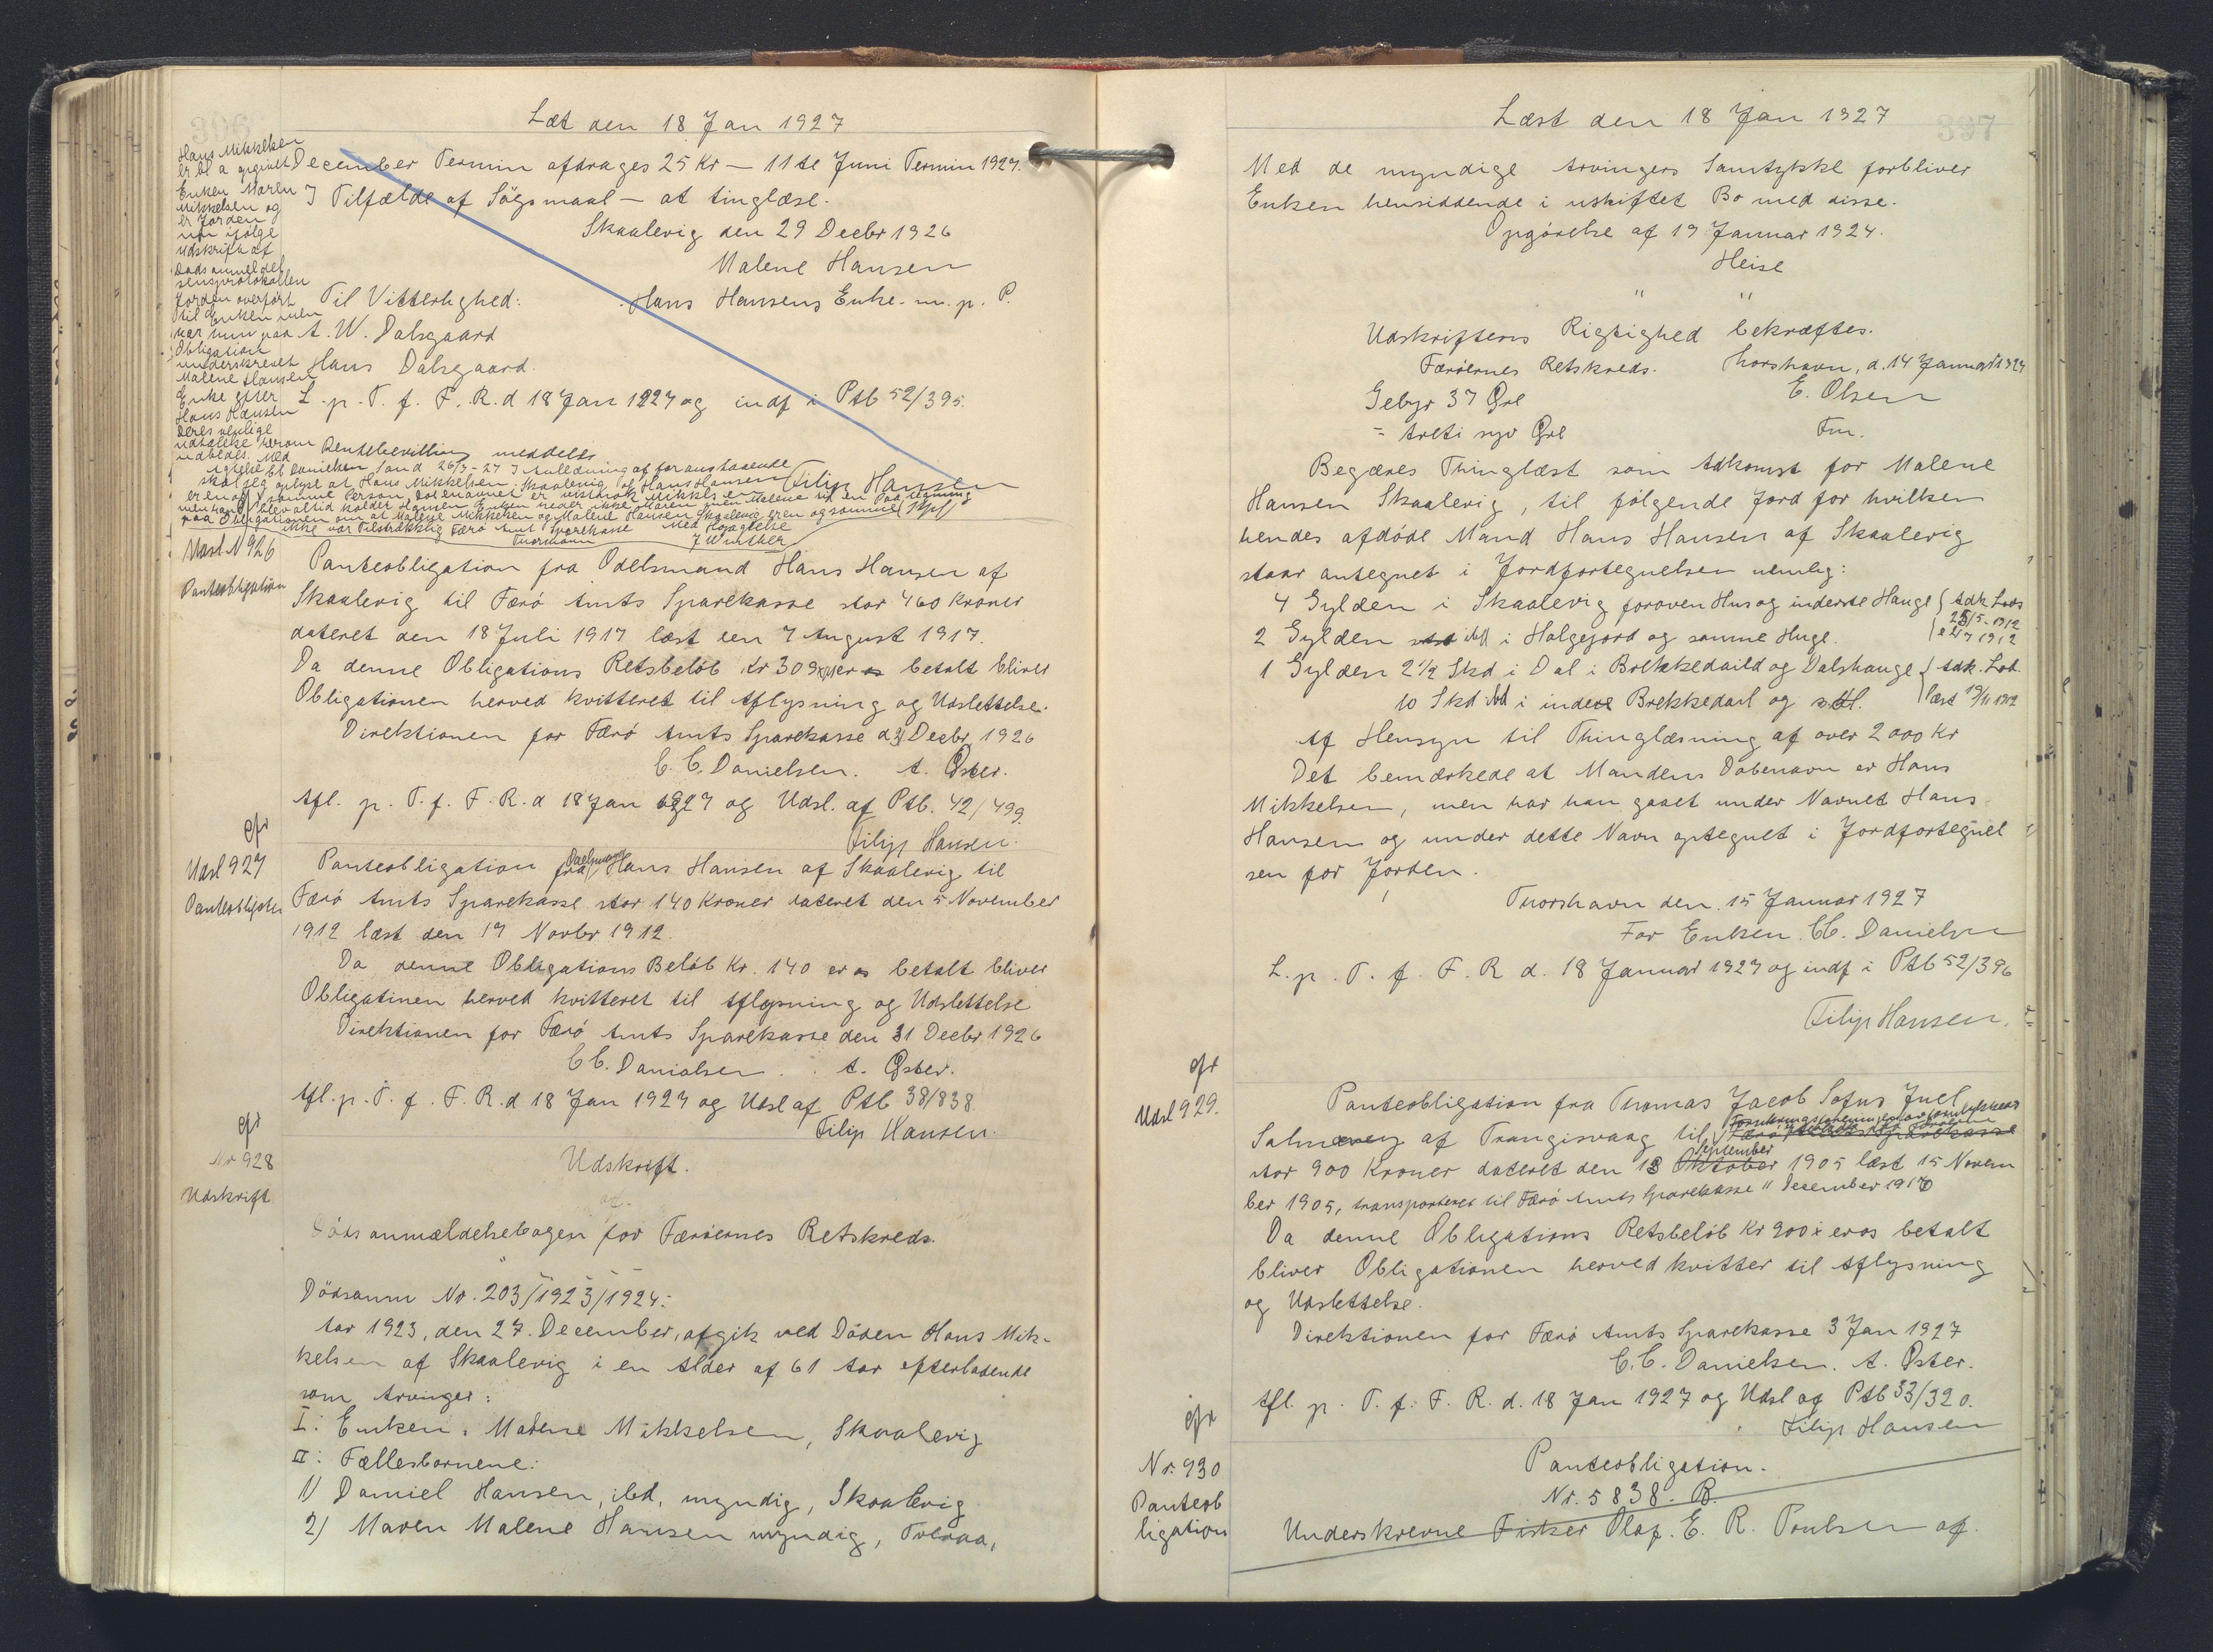 Læt den 18 Jan 1927
Hans Mikkelsen
Enken Maren
Mikkelsen og
er Jorden
Udskrift af
Dødsanmeldel
sensprotokollen
Jorden overført
til Enken men
har hun paa
Obligation
underskrevet
Malene Hansen
Enke efter
Hans Hansen
Deres venlige
udtalelse herom
udbedes. Med
December Termin afdrages 25 Kr — 11te Juni Termin 1927.
I Tilfælde af Sögsmaal — at tinglæse.
Skaalevig den 29 Decbr 1926
Malene Hansen
Til Vitterlighed: Hans Hansens Enke. m. p. P.
A. W. Dalsgaard
Hans Dalsgaard.
L. p. T. f. F. R. d 18 Jan 1927 og indf i Ptb 52/395.
Rentebevilling meddeles
Agtelse CC Danielsen Sand 26/3-27 I Anledning af foranstaaende
skal jeg oplyse at Hans Mikkelsen, Skaalevig og Hans Hansen Filip Hansen
er en og samme Person, Døbenavnet er Mikkelsen
men han blev altid kaldet Hansen Enken heder ikke Maren men Malene
paa Obligationen om at Malene Mikkelsen og Malene Hansen Skaalevig er en og samme
ikke var Tilstrækkelig Færö Amts Sparekasse Med Højagtelse
Thorshavn J Winther
Udsl N 926
Panteobligation
Panteobligation fra Odelsmand Hans Hansen af
Skaalevig til Færö Amts Sparekasse stor 460 Kroner
dateret den 18 Juli 1917 læst den 7 August 1917.
Da denne Obligations Retsbelöb Kr 309 er os betalt bliver
Obligationen herved kvitteret til Aflysning og Udslettelse.
Direktionen for Færö Amts Sparekasse d 31 Decbr 1926
C. C. Danielsen. A. Öster.
Afl. p. T. f. F. R. d 18 Jan 1927 og Udsl. af Ptb. 42/499.
Filip Hansen.
cfr
Udsl 927
Panteobligation
Panteobligation fra Odelsmand Hans Hansen af Skaalevig til
Færö Amts Sparekasse stor 140 Kroner dateret den 5 November
1912 læst den 19 Novbr 1912.
Da denne Obligations Belöb Kr. 140 er os betalt bliver
Obligatinen herved kvitteret til Aflysning og Udslettelse
Direktionen for Færö Amts Sparekasse den 31 Decbr 1926
C C. Danielsen. A. Öster.
Afl. p. T. f. F. R. d 18 Jan 1927 og Udsl af Ptb 38/838.
Filip Hansen.
cfr
Nr 928
Udskrift
Udskrift.
af
Dödsanmældelsebogen for Færöernes Retskreds.
Dödsanm Nr. 203/1923/1924:
Aar 1923, den 27. December, afgik ved Döden Hans Mik-
kelsen af Skaalevig i en Alder af 61 Aar efterladende
som Arvinger:
I: Enken, Malene Mikkelsen, Skaalevig
II: Fællesbörnene:
1) Daniel Hansen, ibd, myndig, Skaalevig
2) Maren Malene Hansen myndig, Tveraa,
397
Læst den 18 Jan 1927
Med de myndige Arvingers Samtykke forbliver
Enken hensiddende i uskiftet Bo med disse.
Opgörelse af 19 Januar 1924.
Heise
" "
Udskriftens Rigtighed bekræftes.
Færöernes Retskreds. Thorshavn, d. 14 Januar 1927
Gebyr 37 Öre E. Olsen
= Treti syv Öre Fm.
Begæres Thinglæst som Adkomst for Malene
Hansen Skaalevig, til fölgende Jord for hvilken
hendes afdöde Mand Hans Hansen af Skaalevig
staar antegnet i Jordfortegnelsen nemlig:
4 Gylden i Skaalevig foroven Hus og inderste Hauge { Adk. Lods
2 Gylden ibd i Holgejord og samme Huge.
1 Gylden 2 1/2 Skd i Dal i Brekkedaild og Dalshauge { Adk. Lod.
10 Skd ibd i indere Brekkedail og læst 19/11 1912
Af Hensyn til Thinglæsning af over 2000 Kr
Det bemærkede at Mandens Döbenavn er Hans
Mikkelsen, men har han gaaet under Navnet Hans
Hansen og under dette Navn optegnet i Jordfortegnel
sen for Jorden.
Thorshavn den 15 Januar 1927
For Enken. CC. Danielsen
L. p. T. f. F. R d. 18 Januar 1927 og indf i Ptb 52/396
Filip Hansen.
cfr
Udsl 929.
Panteobligation fra Thomas Jacob Sofus Juel
af Trangisvaag til Færö Amts Sparekasse
stor 900 Kroner dateret den 13 Oktober September 1905 læst 15 Novem
ber 1905, transporteret til Færö Amts Sparekasse 11 December 1916
Da denne Obligations Retsbelöb Kr 900 er os betalt
bliver Obligationen herved kvitter til Aflysning
og Udslettelse.
Direktionen for Færö Amts Sparekasse 3 Jan 1927
C. C. Danielsen. A. Öster.
Afl. p. T. f. F. R. d. 18 Jan 1927 og Udsl af Ptb 33/320.
Filip Hansen
cfr
Nr. 930
Panteob
ligation
Panteobligation.
Nr. 5838. B.
Underskrevne Fisker Olaf. E. R. Poulsen af.